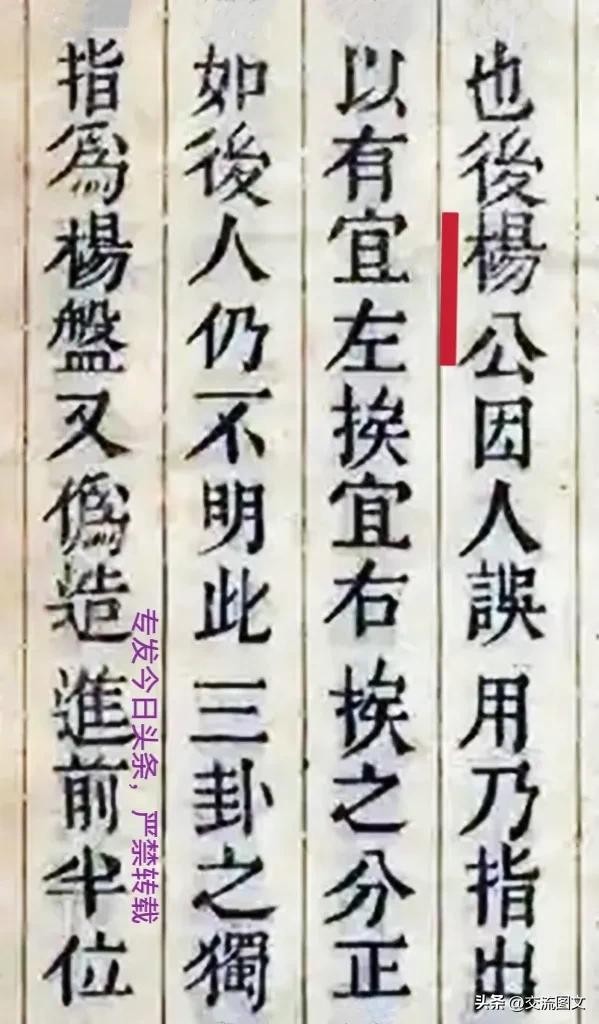 也後楊公因人誤用乃指出
以有宜左挨宜右挨之分正
如後人仍不明此三卦之獨
指為楊盤又偽造進前半位
专发今日头条，严禁转载
头条 @交流图文